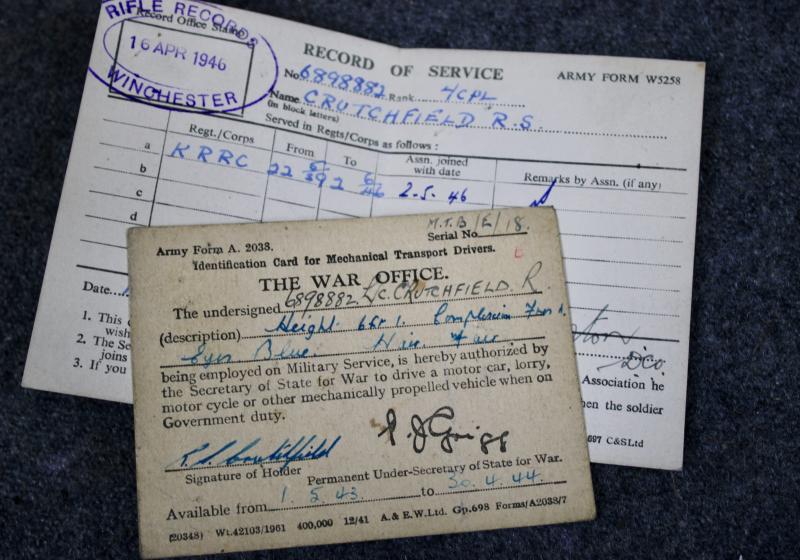 RIFLE RECORDS
Record Office Stamp
16 APR 1946
WINCHESTER
RECORD OF SERVICE
ARMY FORM W5258
No. 6898882 Rank
Name CRUTCHFIELD R.S.
(in block letters)
Served in Regts/Corps as follows :
Regt./Corps From To Assn. joined with date Remarks by Assn. (if any)
a KRRC 22 6/39 2 6/46 2.5.46
b
c
d
Date
1. This
wish
2. The Se
joins
3. If you
Association he
en the soldier
697 C&S Ltd
M.T.B/E/18.
Serial No.
Army Form A. 2038.
E
Identification Card for Mechanical Transport Drivers.
THE WAR OFFICE.
The undersigned 6898882 L/C. CRUTCHFIELD. R.
(description) Height 6ft 1. Complexion
Eyes Blue. Hair Fair
being employed on Military Service, is hereby authorized by
the Secretary of State for War to drive a motor car, lorry,
motor cycle or other mechanically propelled vehicle when on
Government duty.
R S Crutchfield
P. J. Grigg
Signature of Holder
Permanent Under-Secretary of State for War.
Available from 1.5.43. to 30.4.44.
(20348) Wt.42103/1961 400,000 12/41 A. & E.W.Ltd. Gp.698 Forms/A2038/7